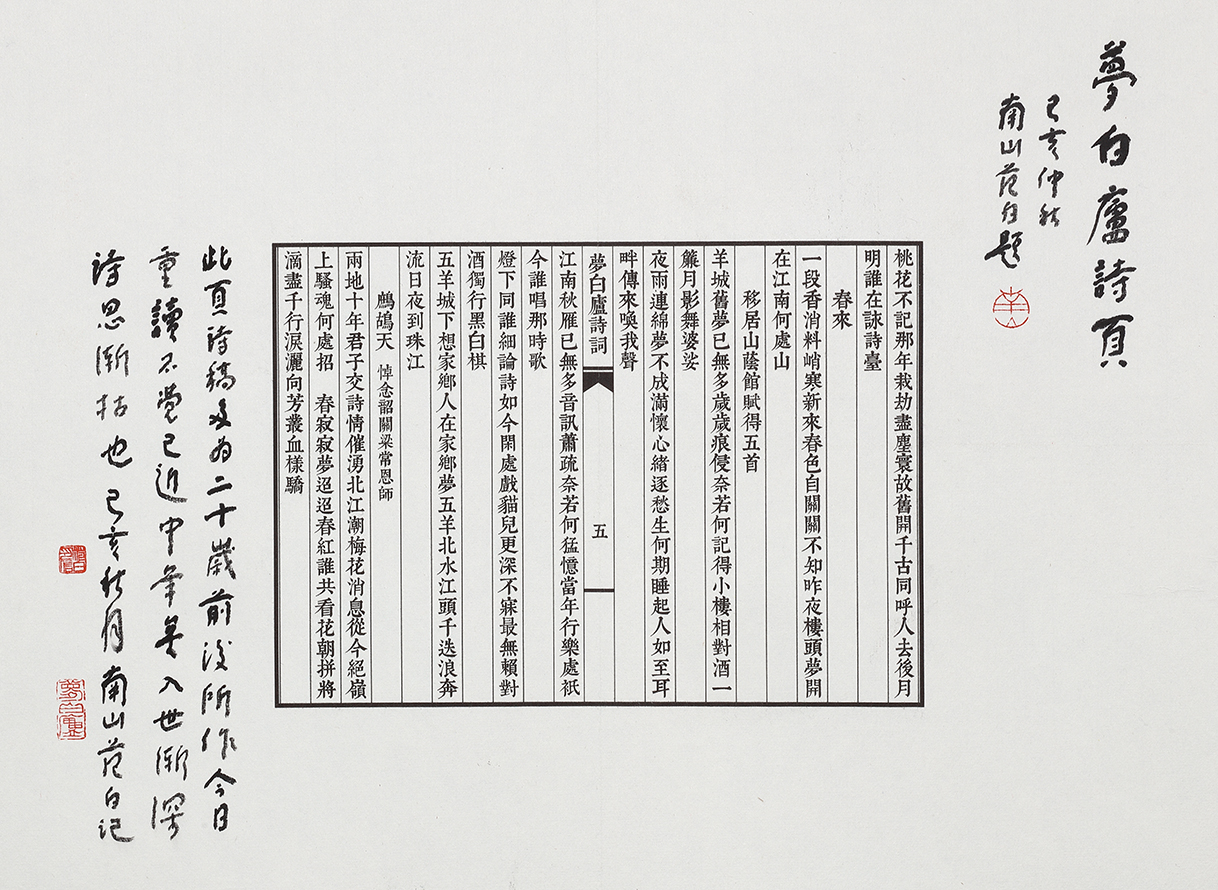 夢白廬詩頁
己亥仲秋
南山范白題
桃花不記那年栽劫盡塵寰故舊開千古同呼人去後月
明誰在詠詩臺
春來
一段香消料峭寒新來春色自關關不知昨夜樓頭夢開
在江南何處山
移居山蔭館賦得五首
羊城舊夢已無多歲歲痕侵奈若何記得小樓相對酒一
簾月影舞婆娑
夜雨連綿夢不成滿懷心緒逐愁生何期睡起人如至耳
畔傳來喚我聲
夢白廬詩詞 五
江南秋雁已無多音訊蕭疏奈若何猛憶當年行樂處祇
今誰唱那時歌
燈下同誰細論詩如今閑處戲貓兒更深不寐最無賴對
酒獨行黑白棋
五羊城下想家鄉人在家鄉夢五羊北水江頭千迭浪奔
流日夜到珠江
鷓鴣天 悼念韶關梁常恩師
兩地十年君子交詩情催湧北江潮梅花消息從今絕嶺
上騷魂何處招 春寂寂夢迢迢春紅誰共看花朝拼將
滴盡千行淚灑向芳叢血樣驕
此頁詩稿多為二十歲前後所作今日
重讀不覺已近中年矣入世漸深
詩思漸枯也 己亥秋月南山范白記
夢白廬